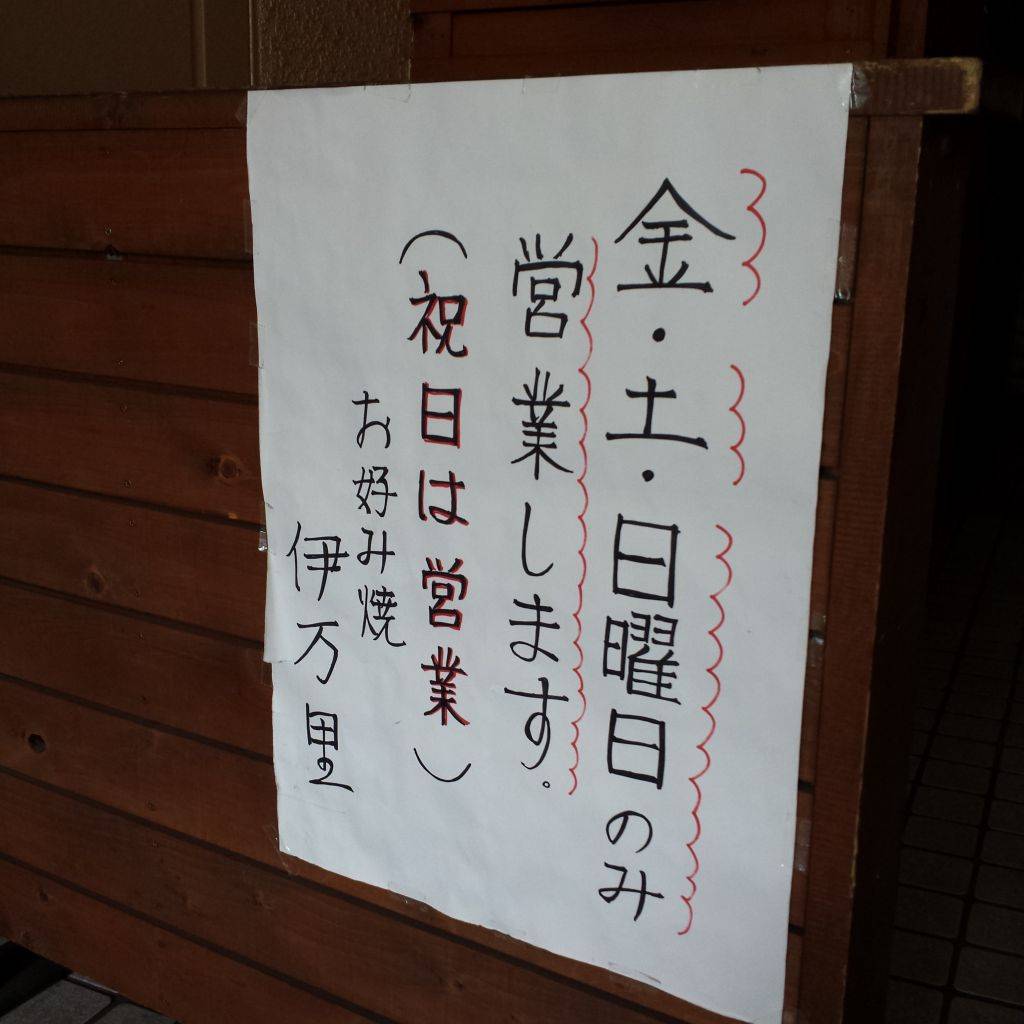 金・土・日曜日のみ
営業します。
(祝日は営業)
お好み焼
伊万里